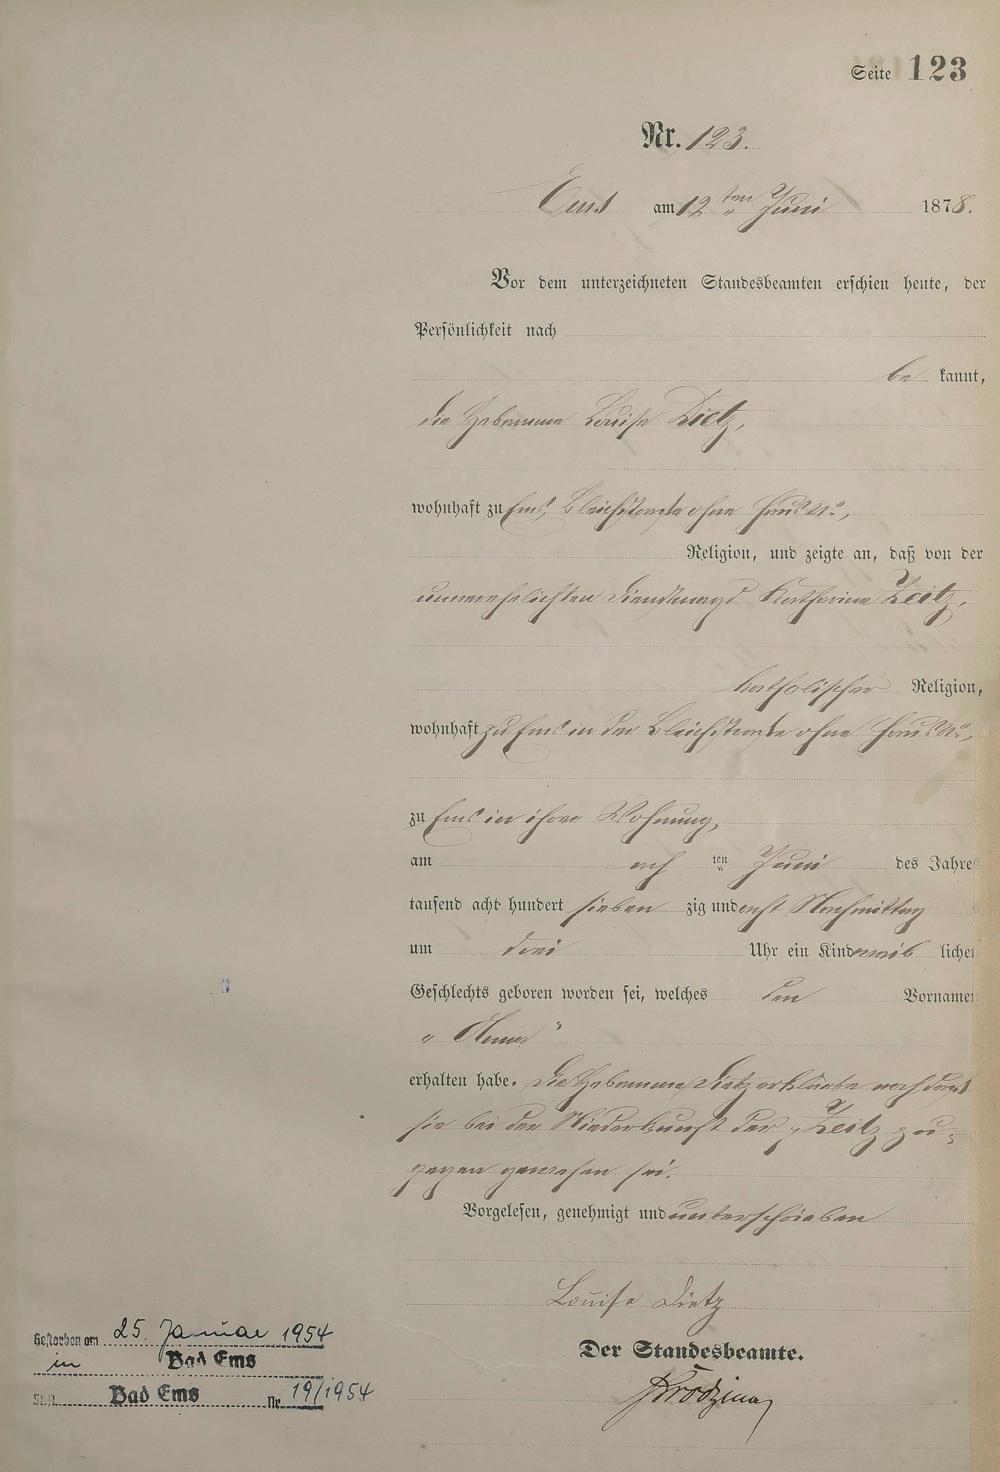 Seite 123
Nr. 123.
Ems am 12ten Juni 1878.
Vor dem unterzeichneten Standesbeamten erschien heute, der
Persönlichkeit nach
be kannt,
die Hebamme Louise Dietz,
wohnhaft zu Ems, Bleichstraße ohne Haus No,
Religion, und zeigte an, daß von der
unverehelichten Dienstmagd Katharina Zeitz,
katholischer Religion,
wohnhaft zu Ems in der Bleichstraße ohne Haus No,
zu Ems in ihrer Wohnung,
am acht ten Juni des Jahre
tausend acht hundert sieben zig und acht Nachmittag
um drei Uhr ein Kind weib lichen
Geschlechts geboren worden sei, welches den Vornamen
"Anna"
erhalten habe. Die Hebamme Dietz erklärte noch daß
sie bei der Niederkunft der Zeitz zu-
gegen gewesen sei.
Vorgelesen, genehmigt und unterschrieben
Louise Dietz
Der Standesbeamte.
Gestorben am 25. Januar 1954
in Bad Ems
St.A. Bad Ems Nr. 19/1954